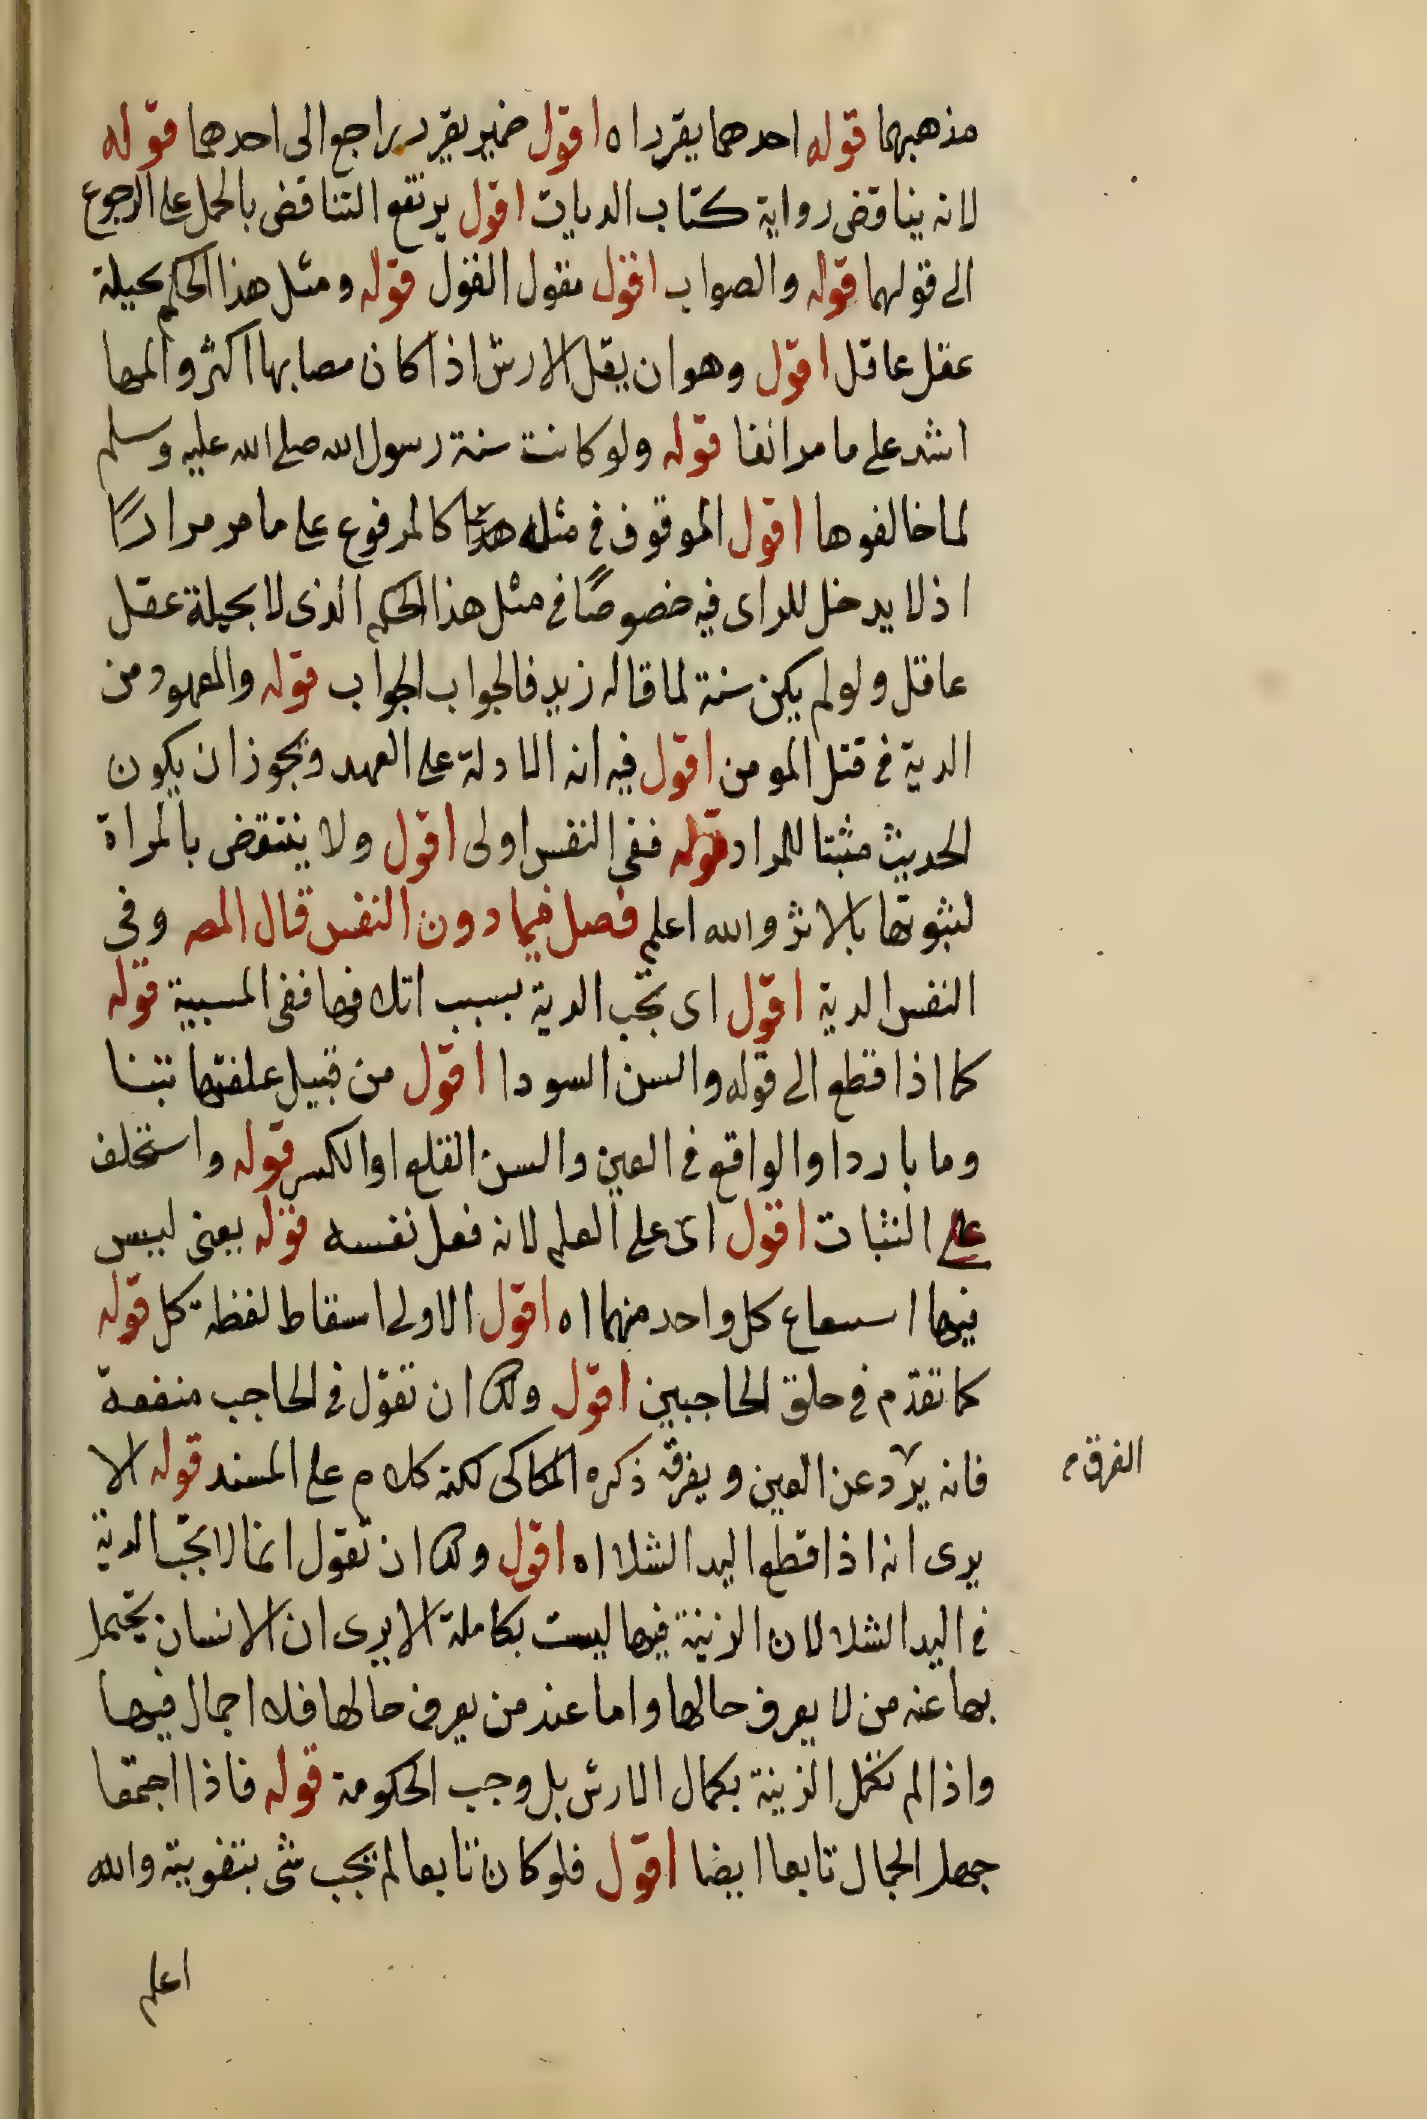 مذهبهما قوله احدهما يقرر اه اقول ضمير يقرر راجع الى احدهما قوله
لانه يناقض رواية كتاب الديات اقول يرتفع التناقض بالحمل على الرجوع
الى قولهما قوله والصواب اقول مقول القول قوله ومثل هذا الحكم يحيله
عقل عاقل اقول وهو ان يقل الارش اذا كان مصابها اكثر والمها
اشد على ما مر انفا قوله ولو كانت سنة رسول الله صلى الله عليه وسلم
لما خالفوها اقول الموقوف في مثله هذا كالمرفوع على ما مر مرارًا
اذ لا يدخل للراى فيه خصوصًا في مثل هذا الحكم الذى لا يحيله عقل
عاقل ولو لم يكن سنة لما قاله زيد فالجواب الجواب قوله والمعهود من
الدية في قتل المومن اقول فيه انه لا دلة على العهد ويجوز ان يكون
الحديث مثبتا للمراد قوله ففى النفس اولى اقول ولا ينتقض بالمراة
لثبوتها بالاثر والله اعلم فصل فيما دون النفس قال المصه وفى
النفس الدية اقول اى تجب الدية بسبب اتلافها ففى المسببية قوله
كما اذا قطع الى قوله والسن السودا اقول من قبيل علفتها تبنا
وما باردا والواقع في العين والسن القلع او الكسر قوله واستخلف
على الثبات اقول اى على العلم لانه فعل نفسه قوله يعنى ليس
فيها استماع كل واحد منهما اه اقول الاولى اسقاط لفظة كل قوله
كما تقدم في حلق الحاجبين اقول ولك ان تقول في الحاجب منفعة
فانه يرد عن العين ويفرقه ذكره الكاكى لكنه كلام على المسند قوله الا
الفرق م
يرى انه اذا قطع اليد الشلا اه اقول ولك ان تقول انما لا تجب الدية
في اليد الشلا لان الزينة فيها ليست بكاملة الا يرى ان الانسان يتجمل
بها عنه من لا يعرف حالها واما عند من يعرف حالها فلا جمال فيها
واذا لم تكمل الزينة بكمال الارش بل وجب الحكومة قوله فاذا اجتمعا
جعل الجمال تابعا ايضا اقول فلو كان تابعا لم يجب شى بتفويته والله
اعلم